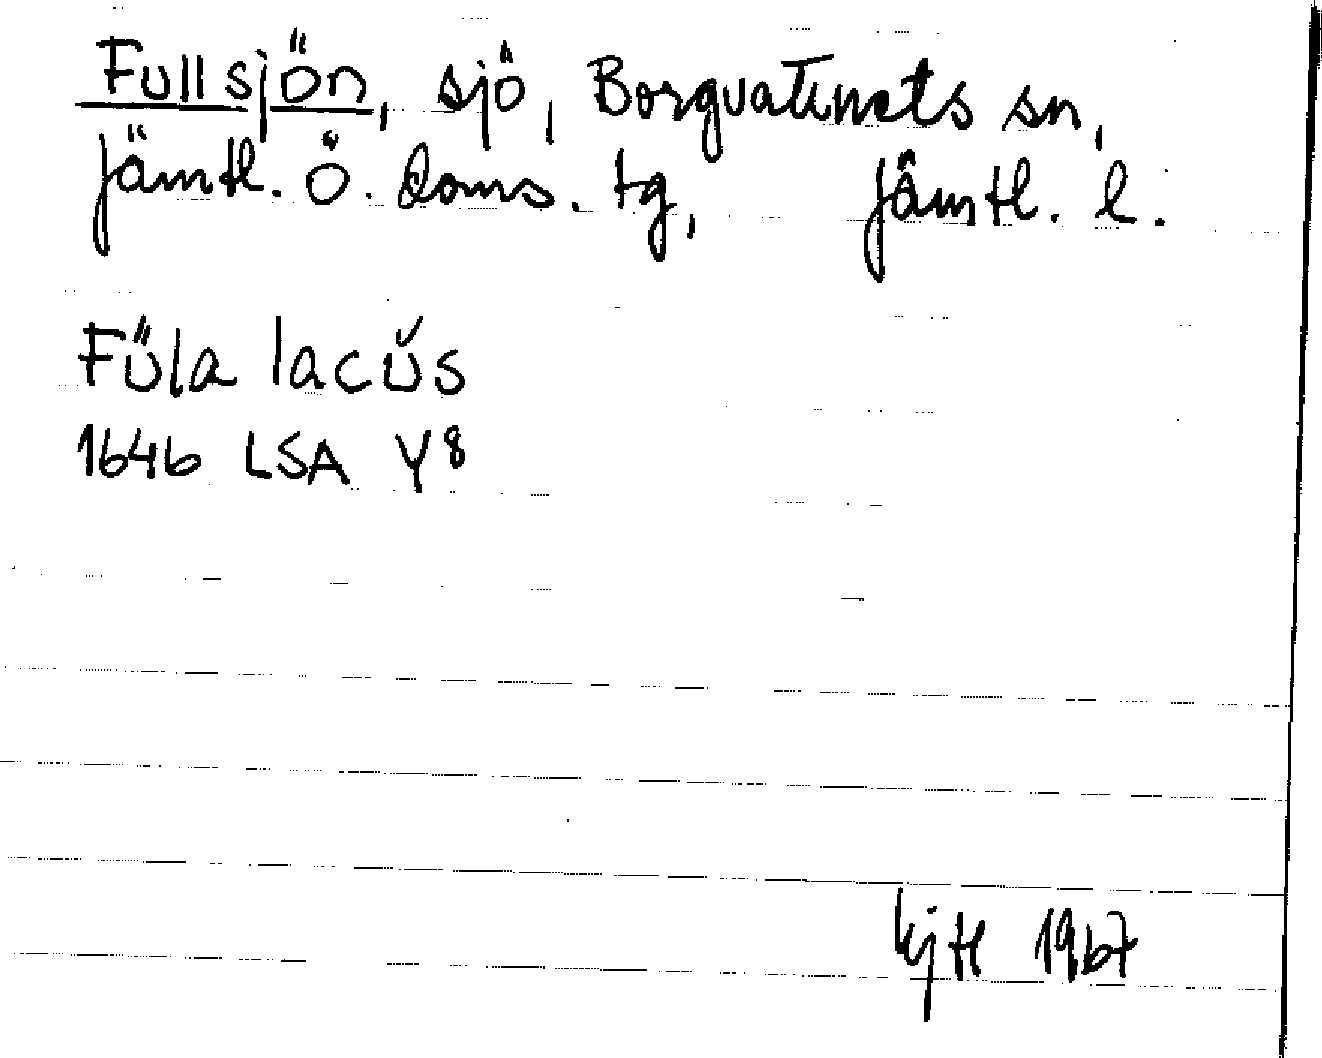 Fullsjön, sjö, Borgvattnets sn,
Jämtl. Ö. doms. tg, Jämtl. l.
Fűla lacŭs
1646 LSA Y8
1967